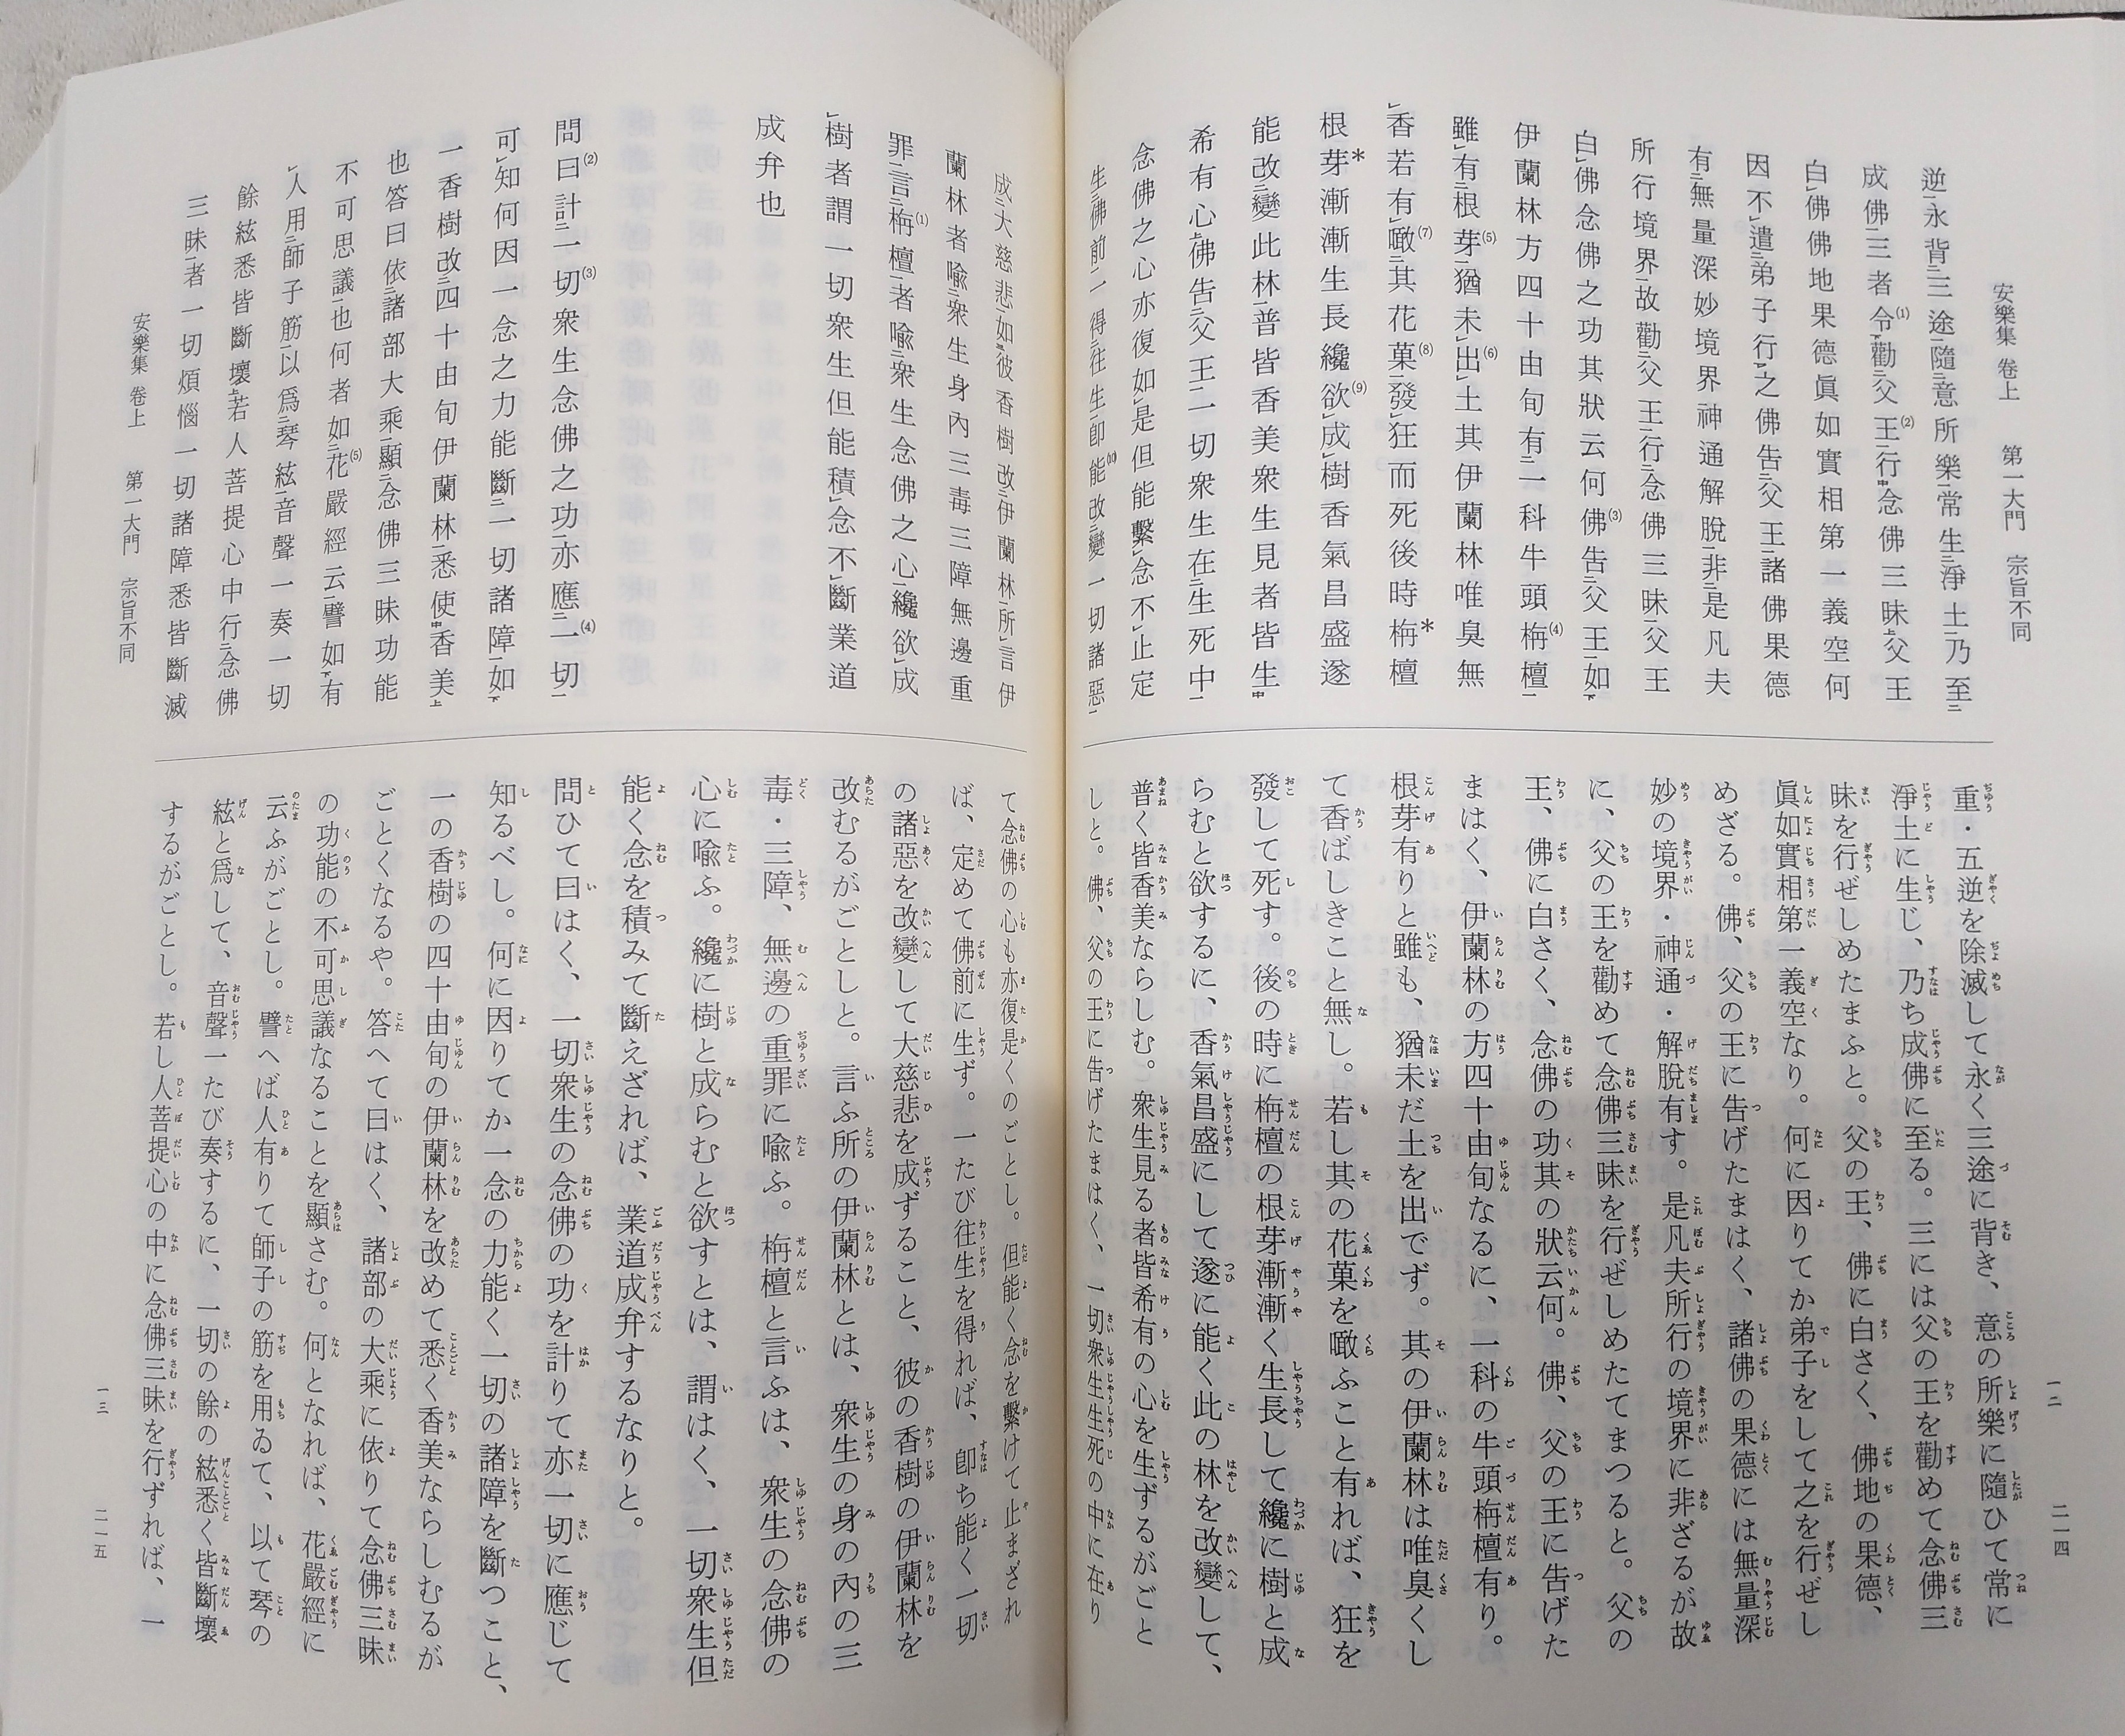 安樂集 卷上 第一大門 宗旨不同
逆永背三途隨意所樂常生淨土乃至
成佛三者令(1)勸父王(2)行念佛三昧父王
白佛佛地果德眞如實相第一義空何
因不遣弟子行之佛告父王諸佛果德
有無量深妙境界神通解脫非是凡夫
所行境界故勸父王行念佛三昧父王
白佛念佛之功其狀云何佛(3)告父王如
伊蘭林方四十由旬有一科牛頭栴(4)檀
雖有根芽(5)猶未出(6)土其伊蘭林唯臭無
香若有噉(7)其花菓(8)發狂而死後時栴*檀
根芽*漸漸生長纔欲(9)成樹香氣昌盛遂
能改變此林普皆香美衆生見者皆生
希有心佛告父王一切衆生在生死中
念佛之心亦復如是但能繫念不止定
生佛前一得往生卽能(10)改變一切諸惡
重・五逆を除滅して永く三途に背き、意の所樂に隨ひて常に
淨土に生じ、乃ち成佛に至る。三には父の王を勸めて念佛三
昧を行ぜしめたまふと。父の王、佛に白さく、佛地の果德、
眞如實相第一義空なり。何に因りてか弟子をして之を行ぜし
めざる。佛、父の王に告げたまはく、諸佛の果德には無量深
妙の境界・神通・解脫有す。是凡夫所行の境界に非ざるが故
に、父の王を勸めて念佛三昧を行ぜしめたてまつると。父の
王、佛に白さく、念佛の功其の狀云何。佛、父の王に告げた
まはく、伊蘭林の方四十由旬なるに、一科の牛頭栴檀有り。
根芽有りと雖も、猶未だ土を出でず。其の伊蘭林は唯臭くし
て香ばしきこと無し。若し其の花菓を噉ふこと有れば、狂を
發して死す。後の時に栴檀の根芽漸漸く生長して纔に樹と成
らむと欲するに、香氣昌盛にして遂に能く此の林を改變して、
普く皆香美ならしむ。衆生見る者皆希有の心を生ずるがごと
しと。佛、父の王に告げたまはく、一切衆生生死の中に在り
一二
二一四
成大慈悲如彼香樹改伊蘭林所言伊
蘭林者喩衆生身內三毒三障無邊重
罪言栴(1)檀者喩衆生念佛之心纔欲成
樹者謂一切衆生但能積念不斷業道
成弁也
問曰(2)計一切(3)衆生念佛之功亦應一(4)切
可知何因一念之力能斷一切諸障如
一香樹改四十由旬伊蘭林悉使香美
也答曰依諸部大乘顯念佛三昧功能
不可思議也何者如花(5)嚴經云譬如有
人用師子筋以爲琴絃音聲一奏一切
餘絃悉皆斷壞若人菩提心中行念佛
三昧者一切煩惱一切諸障悉皆斷滅
安樂集 卷上 第一大門 宗旨不同
て念佛の心も亦復是くのごとし。但能く念を繫けて止まざれ
ば、定めて佛前に生ず。一たび往生を得れば、卽ち能く一切
の諸惡を改變して大慈悲を成ずること、彼の香樹の伊蘭林を
改むるがごとしと。言ふ所の伊蘭林とは、衆生の身の內の三
毒・三障、無邊の重罪に喩ふ。栴檀と言ふは、衆生の念佛の
心に喩ふ。纔に樹と成らむと欲すとは、謂はく、一切衆生但
能く念を積みて斷えざれば、業道成弁するなりと。
問ひて曰はく、一切衆生の念佛の功を計りて亦一切に應じて
知るべし。何に因りてか一念の力能く一切の諸障を斷つこと、
一の香樹の四十由旬の伊蘭林を改めて悉く香美ならしむるが
ごとくなるや。答へて曰はく、諸部の大乘に依りて念佛三昧
の功能の不可思議なることを顯さむ。何となれば、花嚴經に
云ふがごとし。譬へば人有りて師子の筋を用ゐて、以て琴の
絃と爲して、音聲一たび奏するに、一切の餘の絃悉く皆斷壞
するがごとし。若し人菩提心の中に念佛三昧を行ずれば、一
一三
二一五